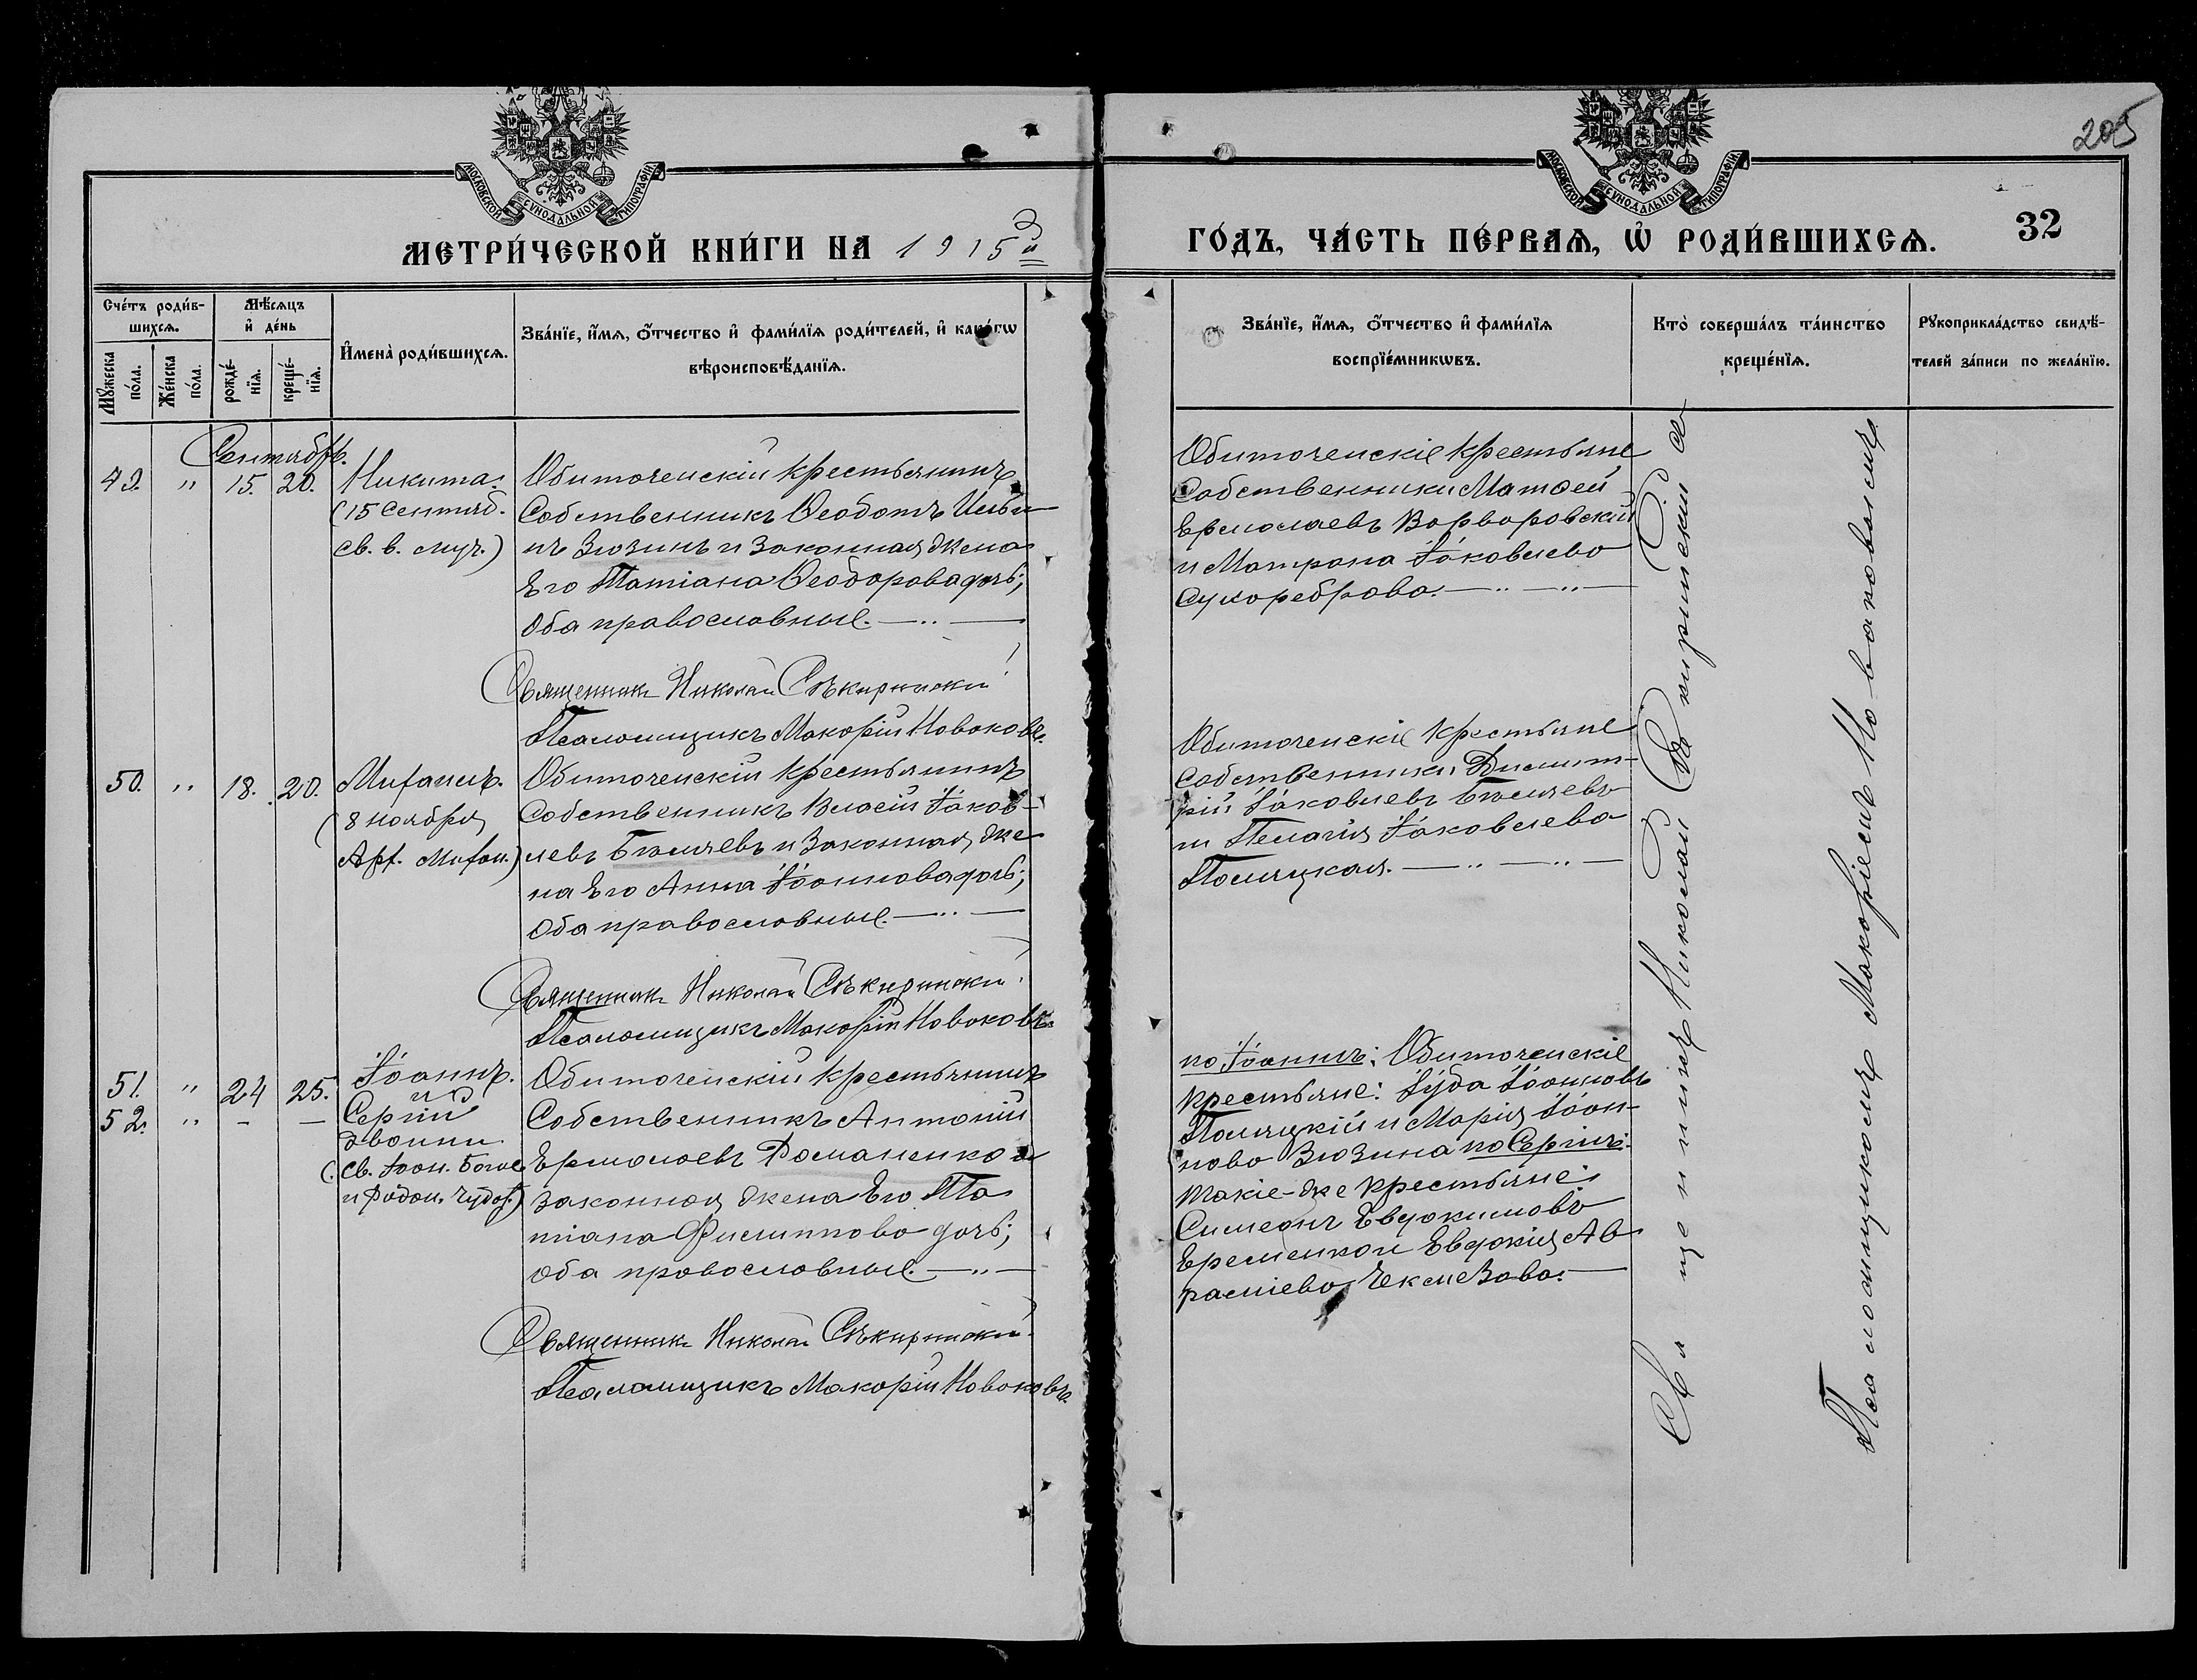 205
МОСКОВСКОЙ СѴНОДАЛЬНОЙ ТИПОГРАФІИ
МОСКОВСКОЙ СѴНОДАЛЬНОЙ ТИПОГРАФІИ
МЕТРИ́ЧЕСКОЙ КНИ́ГИ НА 1915й
ГО́ДЪ, ЧА́СТЬ ПЕ́РВАѦ, Ѡ҆ РОДИ́ВШИХСѦ.
32
Сче́тъ роди́в-
шихсѧ.
Мꙋ́жеска по́ла.
Же́нска по́ла.
Мѣ́сѧцъ
и҆ де́нь
рожде́-
нїѧ.
креще́-
нїѧ.
И҆мена̀ роди́вшихсѧ.
Зва́нїе, и҆́мѧ, ѻ҆́тчество и҆ фами́лїѧ роди́телей, и҆ како́гѡ
вѣроисповѣ́данїѧ.
Зва́нїе, и҆́мѧ, ѻ҆́тчество и҆ фами́лїѧ
воспрїе́мникѡвъ.
Кто̀ соверша́лъ та́инство
креще́нїѧ.
Рꙋкоприкла́дство свидѣ́-
телей за́писи по жела́нїю.
Сентябрь.
49. " 15. 20.
Никита.
(15 Сентяб.
св. в. муч.)
Обиточенскій крестьянинъ
Собственникъ Ѳеодотъ Ильи
нъ Зюзинъ и Законная жена
Его Татіана Ѳеодорова дочь;
Оба православные.
Священник Николай Сѣкиринскій
Псаломщикъ Макорій Новаковъ.
Обиточенскіе крестьяне
Собственники Матѳей
Ермолаевъ Варваровскій
и Матрона Іаковлева
Сухореброва.
50. " 18. 20.
Михаилъ.
(8 ноября,
Арх. Михаи.)
Обиточенскій крестьянинъ
Собственникъ Власій Іаков-
левъ Бѣлячевъ и Законная же
на Его Анна Іоаннова дочь;
Оба православные.
Священник Николай Сѣкиринскій
Псаломщикъ Макорій Новаковъ.
Обиточенскіе крестьяне
Собственники Димит-
рій Іаковлевъ Бѣлячевъ
и Пелагія Іаковлева
Поляцкая.
51. " 24 25.
52. " - -
Іоаннъ.
и
Сергій
двойни
(св. Іоан. Богос
и Радон. Чудот.)
Обиточенскій крестьянинъ
Собственникъ Антоній
Ермолаевъ Романенко и
законная жена Его Та
тіана Филиппова дочь;
Оба православные.
Священник Николай Сѣкиринскій
Псаломщикъ Макорій Новаковъ.
по Іоаннѣ: Обиточенскіе
крестьяне: Іуда Іоанновъ
Поляцкій и Марія Іоан-
нова Зюзина по Сергіѣ:
такіе-же крестьяне:
Симеонъ Евдокимовъ
Еременко и Евдокія Ав
раміева Чекмезова.
Священникъ Николай Сѣкиринскій съ
Псаломщикомъ Макоріемъ Новаковымъ